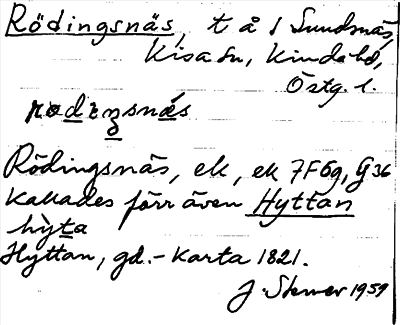 Rödingsnäs, t å / Sundsnäs,
Kisa sn, Kinda hd,
Östg. l.
rødıŋsnæs
Rödingsnäs, ek, ek 7F6g, G36
Kallades förr även Hyttan
hỳta
Hyttan, gd. - Karta 1821.
J. 1959